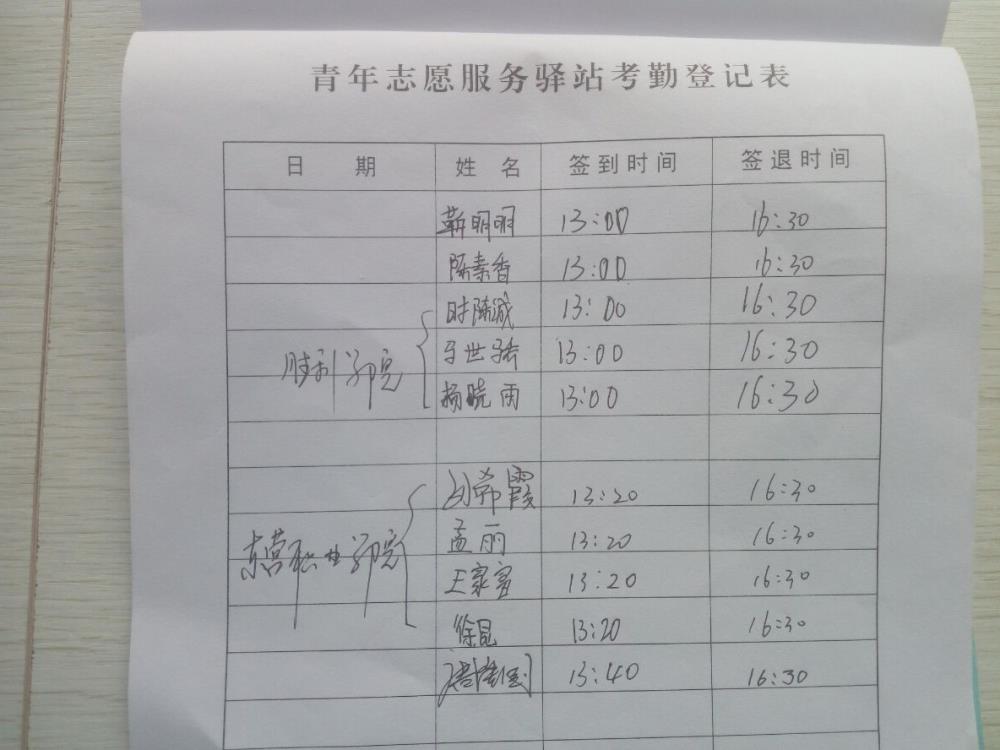 青年志愿服务驿站考勤登记表
日 期 姓 名 签到时间 签退时间
靳明明 13:00 16:30
陈素香 13:00 16:30
时陈诚 13:00 16:30
胜利学院 世 13:00 16:30
杨晓雨 13:00 16:30
霞 13:20 16:30
东营职业学院 孟丽 13:20 16:30
王家富 13:20 16:30
徐昆 13:20 16:30
13:40 16:30